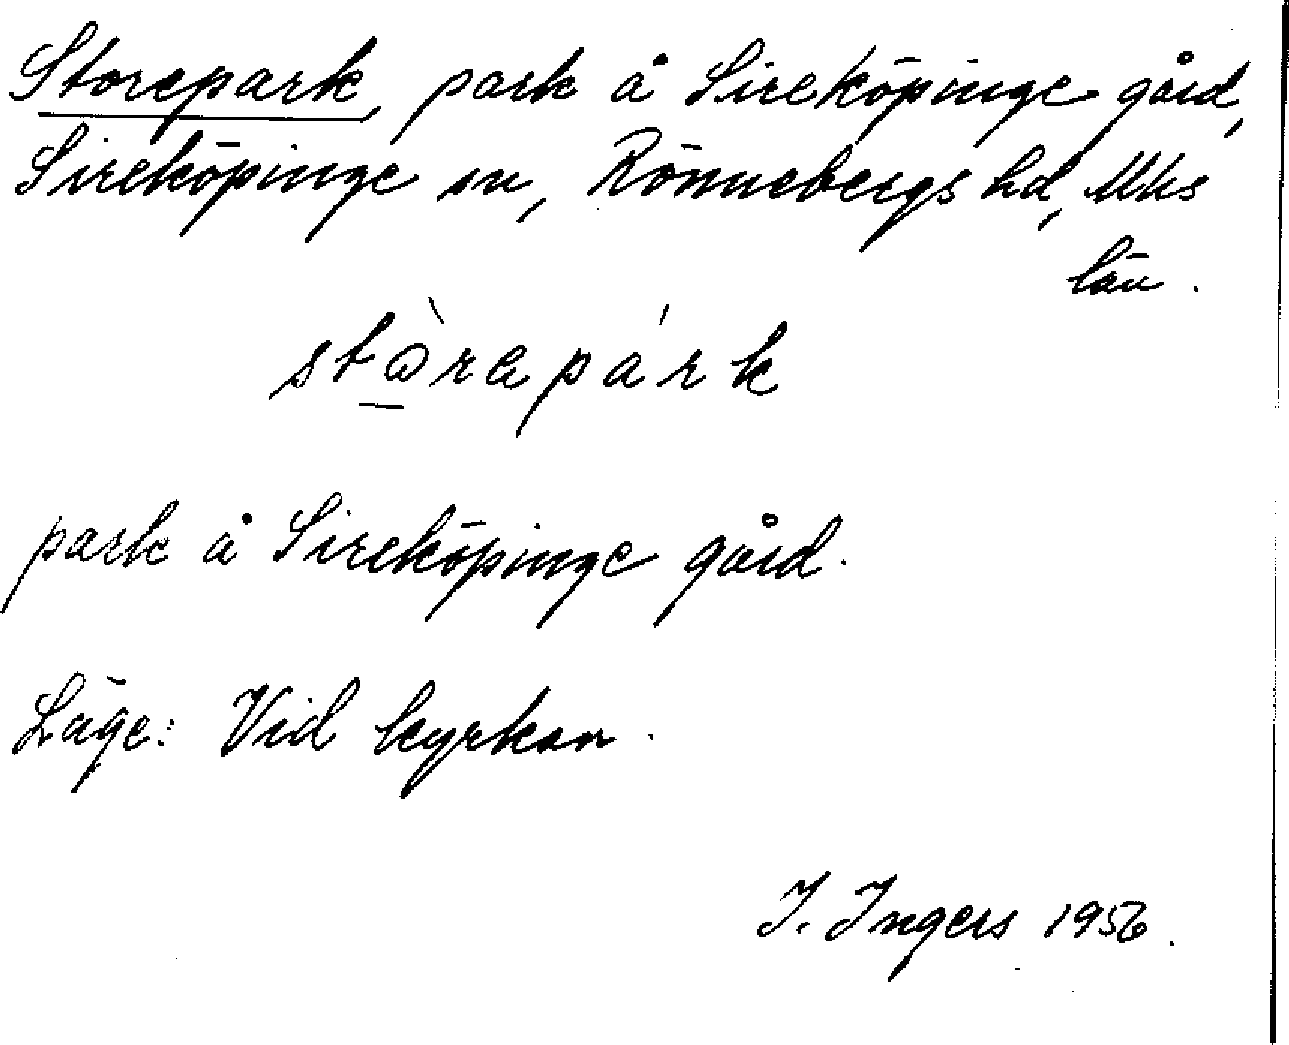 Storepark, park å Sireköpinge gård,
Sireköpinge sn, Rönnebergs hd, Mhs
län.
stòrepárk
park å Sireköpinge gård.
Läge: Vid kyrkan.
I. Ingers 1956.